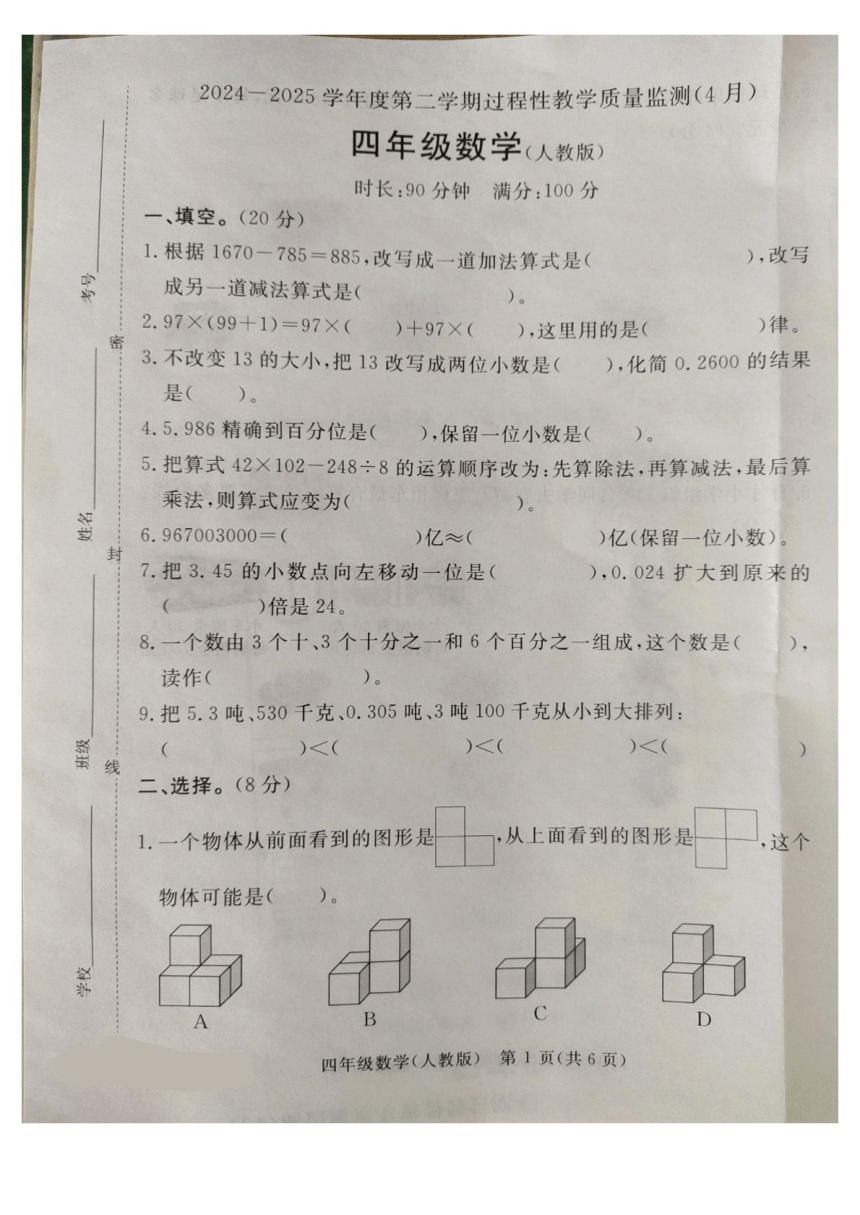 2024－2025学年度第二学期过程性教学质量监测(4月)
四年级数学(人教版)
时长:90分钟 满分:100分
一、填空。(20分)
1.根据1670－785＝885,改写成一道加法算式是( ),改写
成另一道减法算式是( )。
2.97×(99＋1)＝97×( )＋97×( ),这里用的是( )律。
3.不改变13的大小,把13改写成两位小数是( ),化简0.2600的结果
是( )。
4.5.986精确到百分位是( ),保留一位小数是( )。
5.把算式42×102－248÷8的运算顺序改为:先算除法,再算减法,最后算
乘法,则算式应变为( )。
6.967003000＝( )亿≈( )亿(保留一位小数)。
7.把3.45的小数点向左移动一位是( ),0.024扩大到原来的
( )倍是24。
8.一个数由3个十、3个十分之一和6个百分之一组成,这个数是( ),
读作( )。
9.把5.3吨、530千克、0.305吨、3吨100千克从小到大排列:
( )＜( )＜( )＜( )
二、选择。(8分)
1.一个物体从前面看到的图形是 ,从上面看到的图形是 ,这个
物体可能是( )。
A B C D
四年级数学(人教版) 第1页(共6页)
考号
姓名
班级
学校
密
封
线